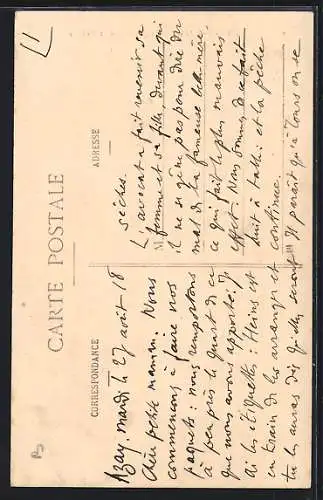 CARTE POSTALE
CORRESPONDANCE
ADRESSE
Bay. mardi le 27 août 18
petite maman. Nous
commençons à faire vos
paquets: nous remportons
à peu près le quart de ce
que nous avons apporté. J'
ai les étiquettes: est
en train de les arranger et
tu les auras dès qu'elles seront
sèches.
L'avocat a fait revenir sa
femme et sa fille devant qui
il ne se gêne pas pour dire du
mal de la fameuse belle-mère.
ce qui fait le plus mauvais
effet. Nous sommes de ce fait
huit à table: et la pêche
continue.
Il paraît qu'à Tours on se